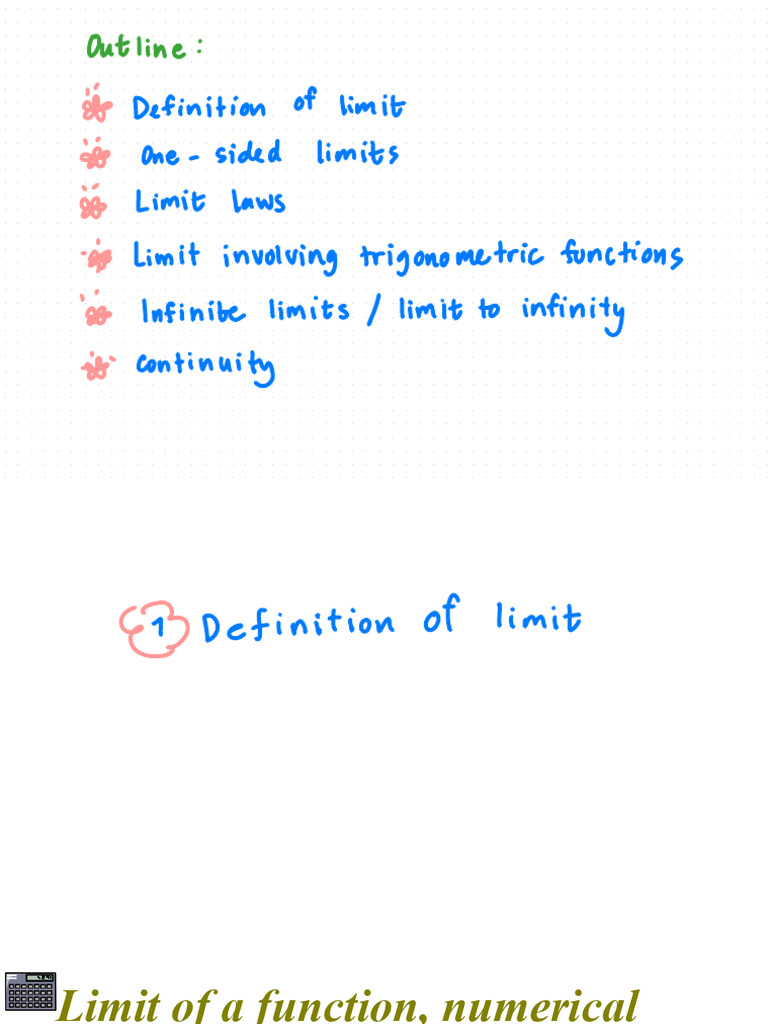 Outline:
Definition of limit
One-sided limits
Limit laws
Limit involving trigonometric functions
Infinite limits / limit to infinity
continuity
1 Definition of limit
Limit of a function, numerical